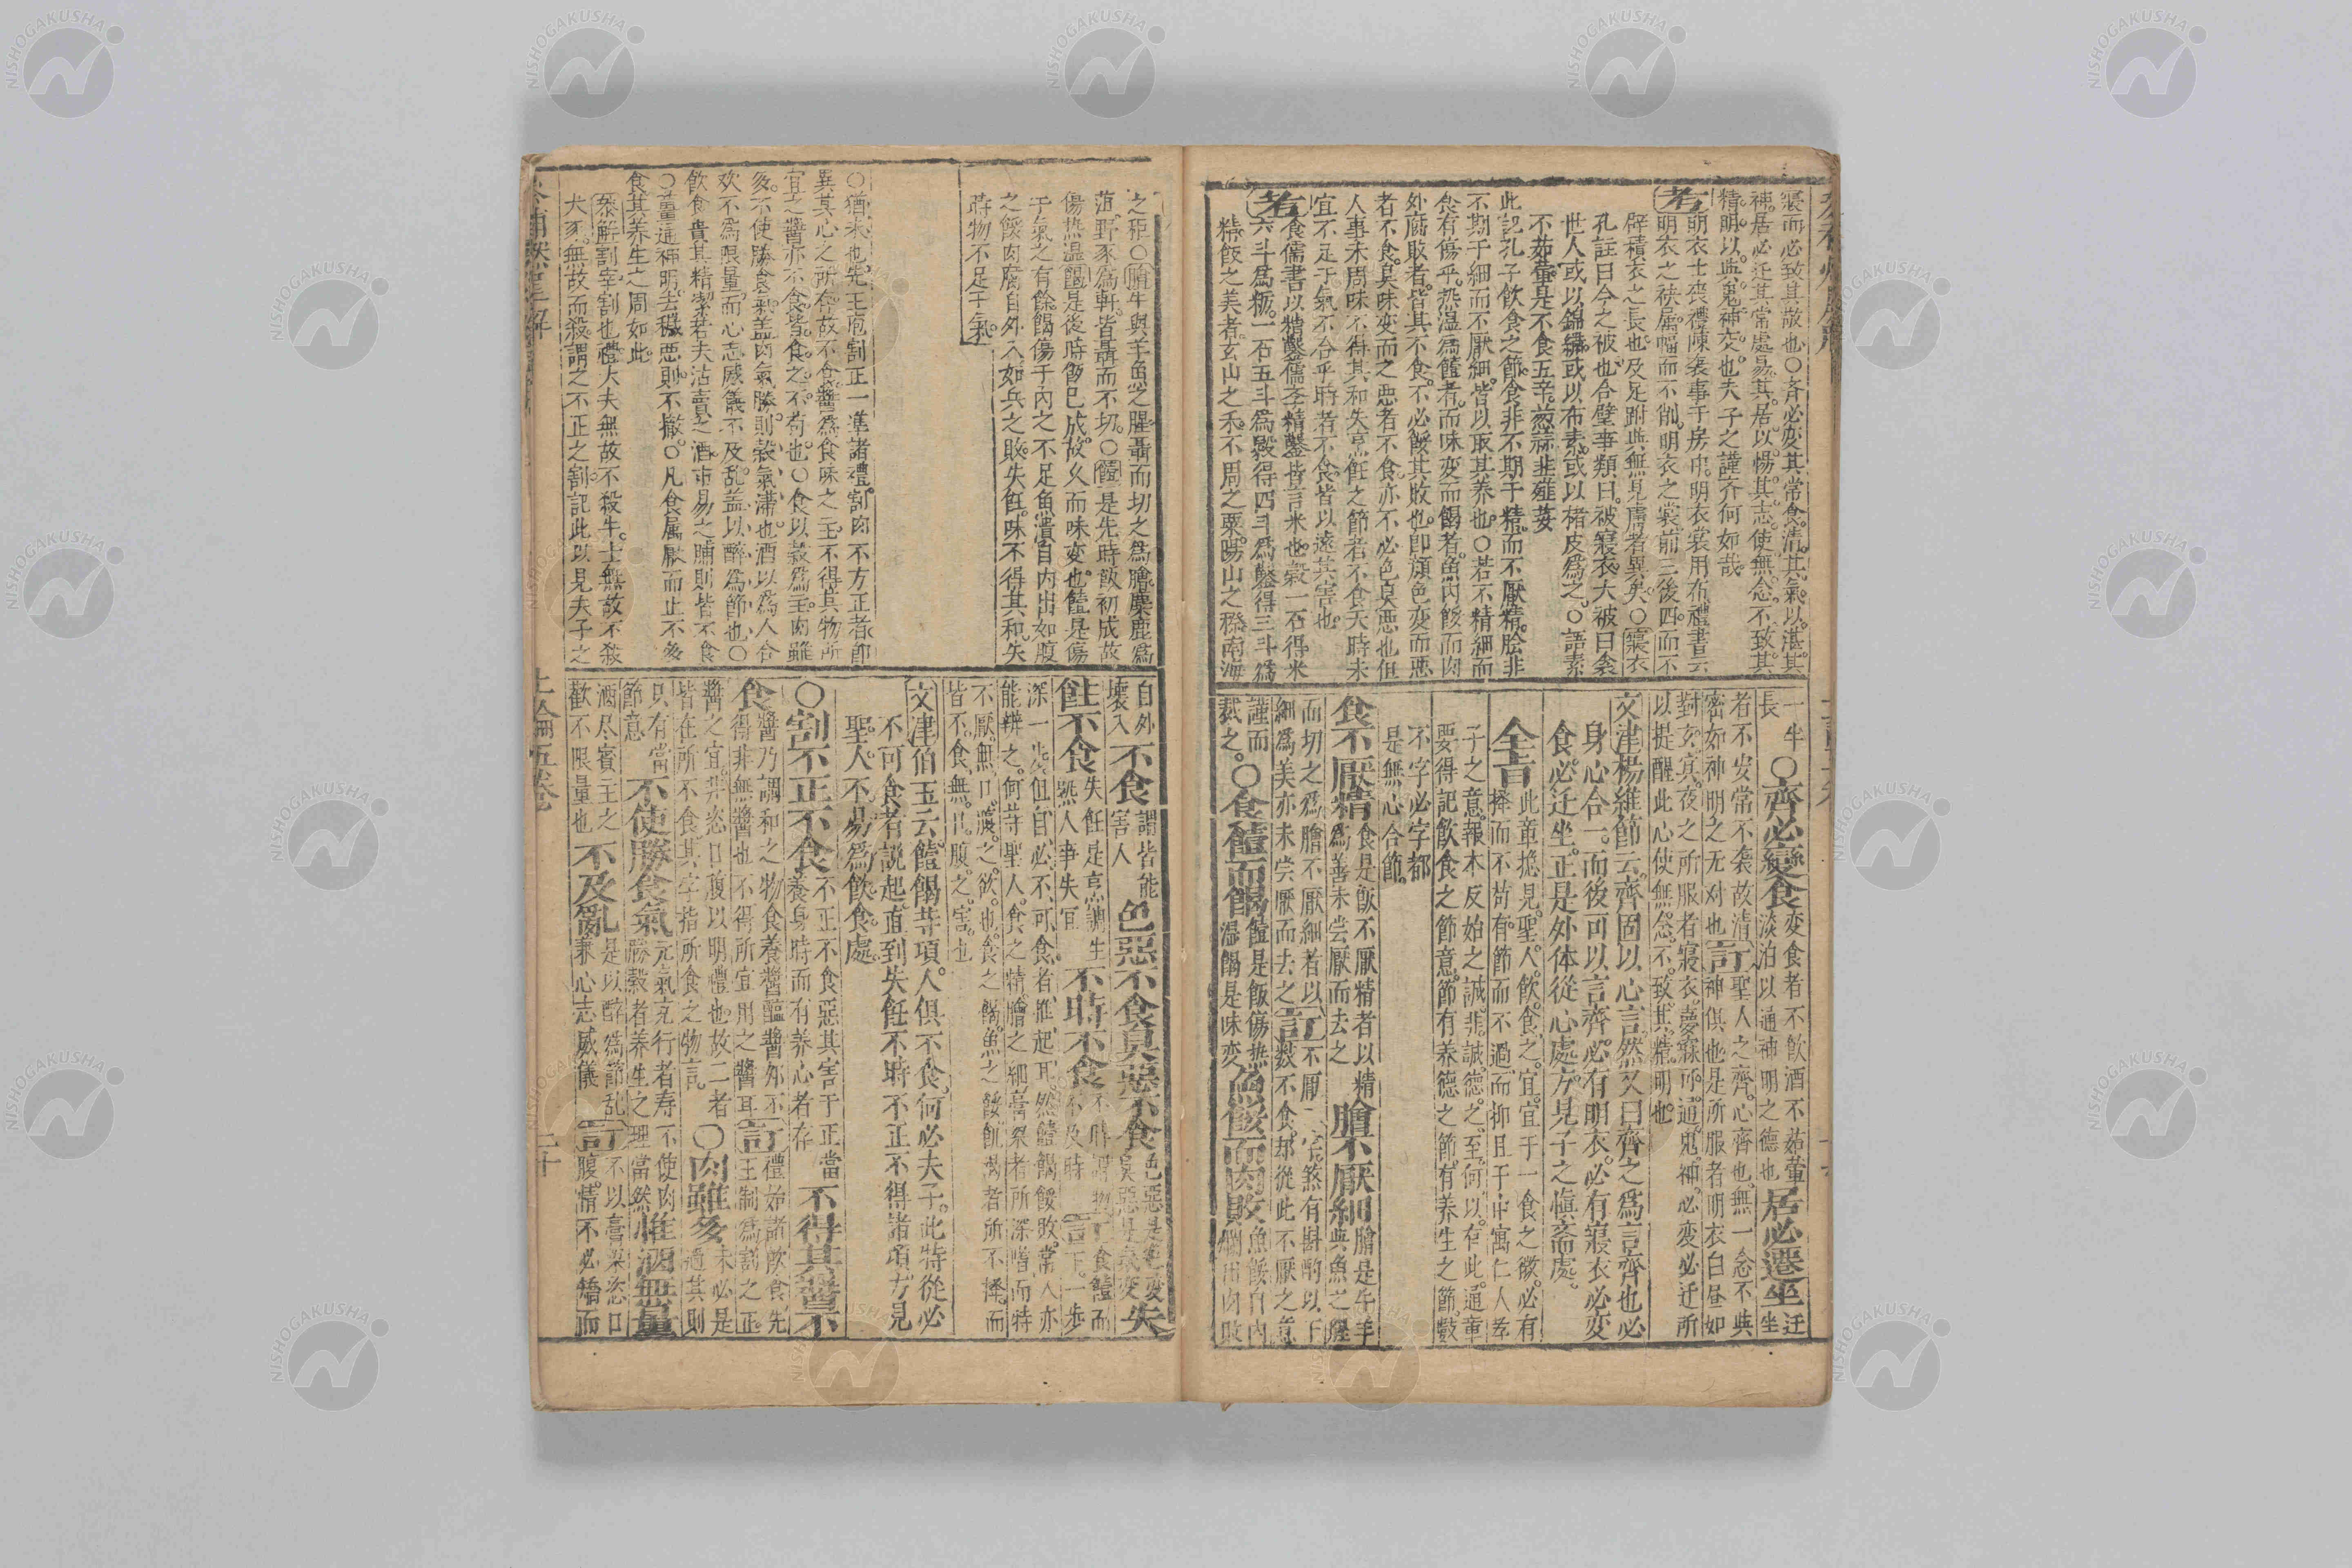 寢而必致其敬也○齊必変其常食清其氣以湛其
神居必迁其常處易其居以惕其志使無念不致其
精明以與鬼神交也夫子之謹齊何如哉
考 明衣士喪禮陳襲事于房中明衣裳用布禮書云
明衣之袂属幅而不削明衣之裳前三後四而不
辟積衣之長也及足跗與無見膚者異矣○寢衣
孔註曰今之被也合璧事類曰被寢衣大被曰衾
世人或以錦繡或以布素或以楮皮為之○語素
不茹葷是不食五辛葱蒜韭薤荽
此記孔子飲食之節食非不期于精而不厭精脍非
不期于細而不厭細皆以取其养也○若不精細而
食有傷乎热温為饐者而味变而餲者魚内餒而肉
外腐敗者皆其不食不必餒其敗也即顔色変而悪
者不食臭味变而之悪者不食亦不必色臭悪也但
人事未周味不得其和失烹飪之節者不食天時未
宜不足于氣不合乎時者不食皆以遠其害也
考 食儒書以精鑿儒李精鑿皆言米也穀一石得米
六斗為粝一石五斗為毇得四斗為鑿得三斗為
精飯之美者玄山之禾不周之粟陽山之穄南海
一半○齊必變食変食者不飲酒不茹葷
長 淡泊以通神明之德也居必遷坐迁坐
者不安常不襲故清訂聖人之齊心齊也無一念不與
密如神明之无对也 神俱也是所服者明衣白昼如
對玄冥夜之所服者寢衣夢寐所通鬼神必变必迁所
以提醒此心使無念不致其精明也
文津楊維節云齊固以心言然又曰齊之為言齊也必
身心合一而後可以言齊必有明衣必有寢衣必变
食必迁坐正是外体從心處方見子之慎斎處
全旨 此章揔見聖人飲食之宜宜于一食之微必有
擇而不苟有節而不過而抑且于中寓仁人孝
子之意報本反始之誠非誠德之至何以有此通章
要得記飲食之節意節有养德之節有养生之節數
不字必字都
是無心合節
食不厭精食是飯不厭精者以精
為善未尝厭而去之膾不厭細膾是牛羊
與魚之腥
而切之為膾不厭細者以訂不厭二字煞有斟酌以下
細為美亦未尝厭而去之 數不食却從此不厭之意
謹而
裁之○食饐而餲饐是飯傷热
温餲是味变魚餒而肉敗魚餒自内
爛出肉敗
之秬○膾牛與羊魚之腥聶而切之為膾麋鹿為
菹野豕為軒皆聶而不切○饐是先時飯初成故
傷热温餲是後時飯已成故久而味变也饐是傷
于氣之有餘餲傷于内之不足魚潰自内出如腹
之餒肉腐自外入如兵之敗失飪味不得其和失
時物不足于氣
○猶未也先王庖割正一準諸禮割肉不方正者即
異其心之所存故不食醬為食味之主不得其物所
宜之醬亦不食皆食之不苟也○食以穀為主肉雖
多不使勝食氣盖肉氣勝則穀氣滞也酒以為人合
欢不為限量而心志威儀不及乱盖以醉為節也○
飲食貴其精潔若夫沽賣之酒市易之脯則皆不食
○薑通神明去穢悪則不撤○凡食属厭而止不多
食其养生之周如此
叅解割宰割也禮大夫無故不殺牛士無故不殺
犬豕無故而殺謂之不正之割記此以見夫子之
自外
壞入不食謂皆能
害人色惡不食臭惡不食色惡是色变
臭惡是氣变失
飪不食失飪是烹調生
熟人事失宜不時不食不時謂物
不及時言下一步
深一步但自必不可食者推起耳然饐餲餒敗常人亦
能辨之何待聖人食之精膾之細膏粱者所深嗜而特
不厭無口腹之欲也食之餲魚之餒飢渴者所不擇而
皆不食無口腹之害也
文津伯玉云饐餲等項人俱不食何必夫子此特從必
不可食者説起直到失飪不時不正不得諸項方見
聖人不易為飲食處
○割不正不食不正不食惡其害于正當
養身時而有养心者存不得其醬不
食 醬乃調和之物食養醬醢醬外不
得非無醬也不得所宜用之醬耳訂禮始諸飲食先
王制為割之正
醬之宜非恣口腹以明禮也故二者
皆在所不食其字指所食之物言○肉雖多未必是
過其則
只有當
節意不使勝食氣元氣充行者寿不使肉
勝穀者养生之理當然惟酒無量
酒尽賓主之
歡不限量也不及亂是以醉為節乱
兼心志威儀訂不以膏粱恣口
腹情不必矯而
上論五卷
二十